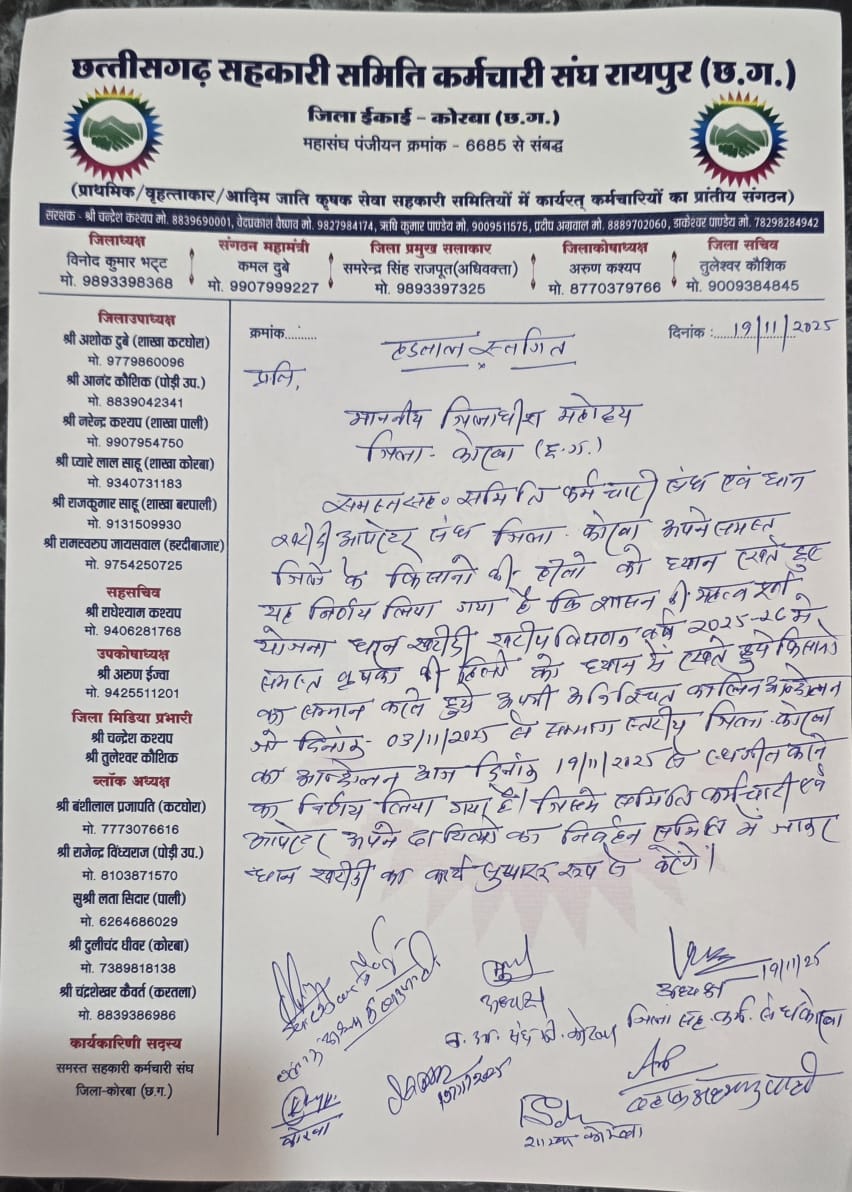 छत्तीसगढ़ सहकारी समिति कर्मचारी संघ रायपुर (छ.ग.)
जिला ईकाई - कोरबा (छ.ग.)
महासंघ पंजीयन क्रमांक - 6685 से संबद्ध
(प्राथमिक/वृहत्ताकार/आदिम जाति कृषक सेवा सहकारी समितियों में कार्यरत् कर्मचारियों का प्रांतीय संगठन)
संरक्षक - श्री चन्द्रेश कश्यप मो. 8839690001, वेदप्रकाश वैष्णव मो. 9827984174, ऋषि कुमार पाण्डेय मो. 9009511575, प्रदीप अग्रवाल मो. 8889702060, डाकेश्वर पाण्डेय मो. 78298284942
जिलाध्यक्ष
विनोद कुमार भट्ट
मो. 9893398368
संगठन महामंत्री
कमल दुबे
मो. 9907999227
जिला प्रमुख सलाकार
समरेन्द्र सिंह राजपूत(अधिवक्ता)
मो. 9893397325
जिलाकोषाध्यक्ष
अरुण कश्यप
मो. 8770379766
जिला सचिव
तुलेश्वर कौशिक
मो. 9009384845
जिलाउपाध्यक्ष
श्री अशोक दुबे (शाखा कटघोरा)
मो. 9779860096
श्री आनंद कौशिक (पोड़ी उप.)
मो. 8839042341
श्री नरेन्द्र कश्यप (शाखा पाली)
मो. 9907954750
श्री प्यारे लाल साहू (शाखा कोरबा)
मो. 9340731183
श्री राजकुमार साहू (शाखा बरपाली)
मो. 9131509930
श्री रामस्वरुप जायसवाल (हरदीबाजार)
मो. 9754250725
सहसचिव
श्री राधेश्याम कश्यप
मो. 9406281768
उपकोषाध्यक्ष
श्री अरुण ईज्वा
मो. 9425511201
जिला मिडिया प्रभारी
श्री चन्द्रेश कश्यप
श्री तुलेश्वर कौशिक
ब्लॉक अध्यक्ष
श्री बंशीलाल प्रजापति (कटघोरा)
मो. 7773076616
श्री राजेन्द्र विंध्यराज (पोड़ी उप.)
मो. 8103871570
सुश्री लता सिदार (पाली)
मो. 6264686029
श्री दुलीचंद धीवर (कोरबा)
मो. 7389818138
श्री चंद्रशेखर कैवर्त (करतला)
मो. 8839386986
कार्यकारिणी सदस्य
समस्त सहकारी कर्मचारी संघ
जिला-कोरबा (छ.ग.)
क्रमांक..........
दिनांक : 19/11/2025
हडताल स्तगित
प्रति,
माननीय जिलाधीश महोदय
जिला - कोरबा (छ.ग.)
समस्त सह. समिति कर्मचारी संघ एवं धान
खरीदी आपरेटर संघ जिला - कोरबा अपने समस्त
जिले के किसानो की हीतो को ध्यान रखते हुए
यह निर्णय लिया गया है कि शासन की महत्व पूर्ण
योजना धान खरीदी खरीफ विपणन वर्ष 2025-26 मे
समस्त कृषको की हितो को ध्यान में रखते हुये किसानो
का सम्मान करते हुये अपनी अनिश्चित कालिन आन्दोलन
जो दिनांक - 03/11/2025 से सम्भाग स्तरीय जिला - कोरबा
का आन्दोलन आज दिनांक 19/11/2025 से स्थगीत करने
का निर्णय लिया गया है। जिसमे समिति कर्मचारी एवं
आपरेटर अपने दायित्वो का निर्वहन समिति में जाकर
धान खरीदी का कार्य सुचारू रूप से करेंगे।
अध्यक्ष
19/11/25
अध्यक्ष
जिला सह. कर्म. संघ कोरबा
19/11/2025
कोरबा
शाखा कोरबा